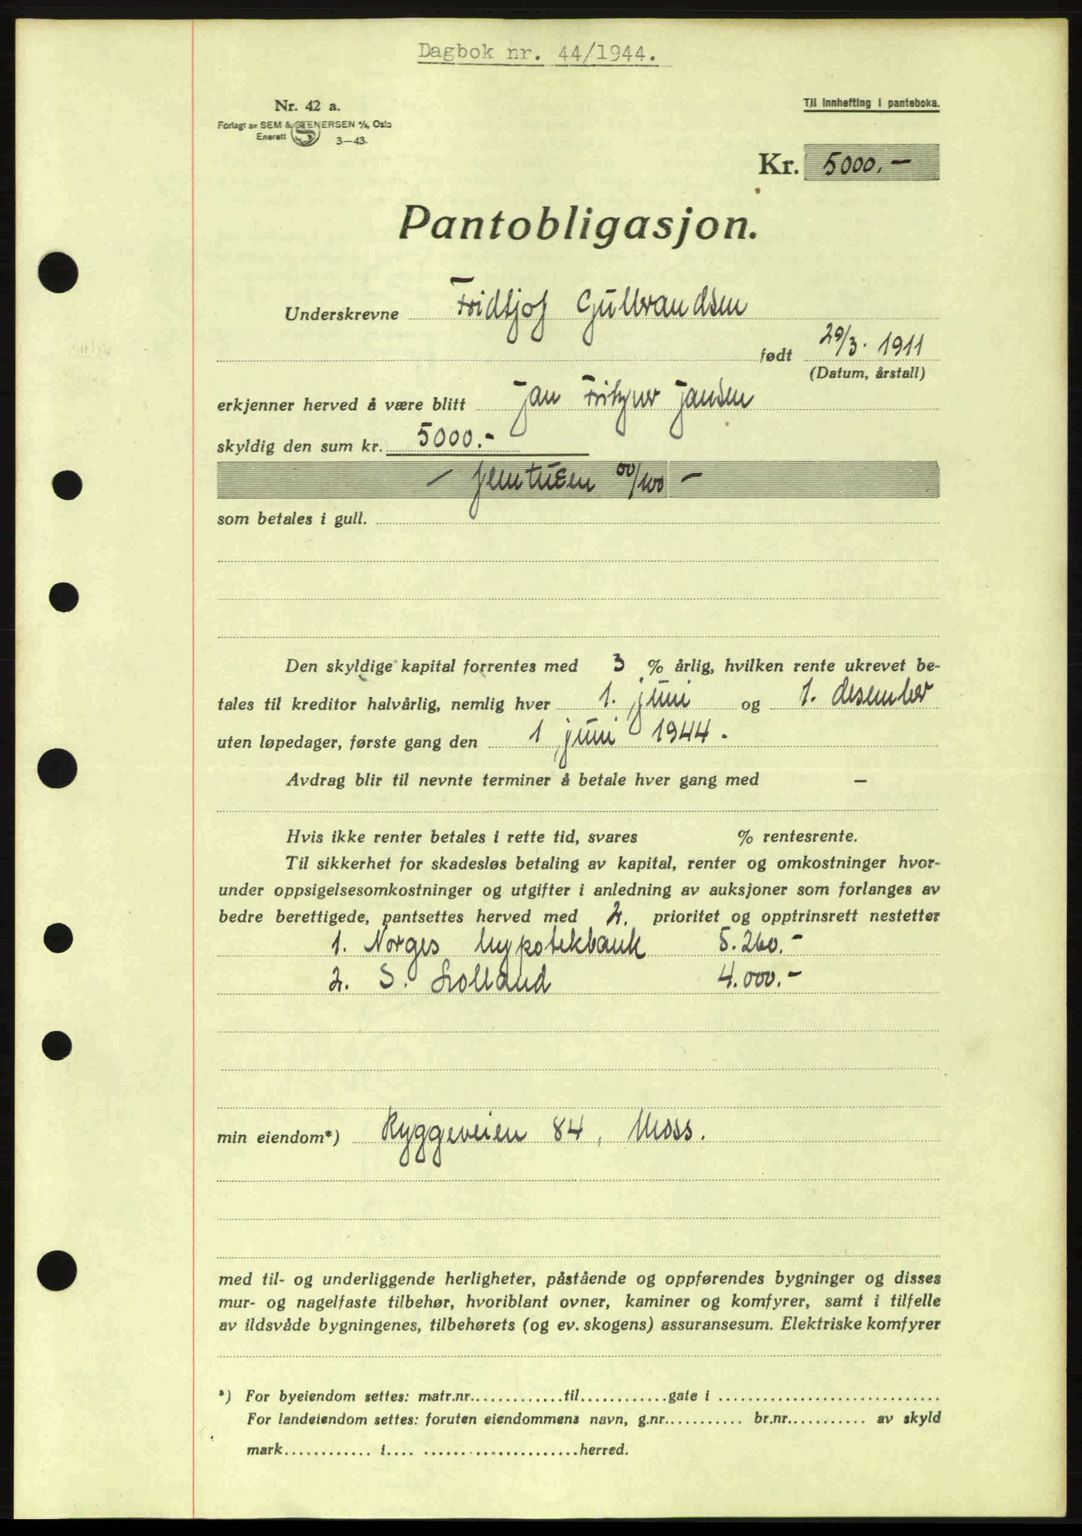 Dagbok nr. 44/1944.
Nr. 42 a.
Forlagt av SEM & STENERSEN A/S, Oslo
Enerett
3—43.
Til innhefting i panteboka.
Kr. 5000.—
Pantobligasjon.
Underskrevne Fridtjof Gulbrandsen
født 29/3. 1911
(Datum, årstall)
erkjenner herved å være blitt Jan Fritzner Jansen
skyldig den sum kr. 5000.-
— femtusen 00/100 —
som betales i gull.
Den skyldige kapital forrentes med 3 % årlig, hvilken rente ukrevet be-
tales til kreditor halvårlig, nemlig hver 1. juni og 1. desember
uten løpedager, første gang den 1 juni 1944.
Avdrag blir til nevnte terminer å betale hver gang med —
Hvis ikke renter betales i rette tid, svares % rentesrente.
Til sikkerhet for skadesløs betaling av kapital, renter og omkostninger hvor-
under oppsigelsesomkostninger og utgifter i anledning av auksjoner som forlanges av
bedre berettigede, pantsettes herved med 2. prioritet og opptrinsrett nestetter
1. Norges hypotekbank 5.260.-
2. S. Lolland 4.000.-
min eiendom*) Ryggeveien 84, Moss.
med til- og underliggende herligheter, påstående og oppførendes bygninger og disses
mur- og nagelfaste tilbehør, hvoriblant ovner, kaminer og komfyrer, samt i tilfelle
av ildsvåde bygningenes, tilbehørets (og ev. skogens) assuransesum. Elektriske komfyrer
*) For byeiendom settes: matr.nr.............til............gate i ..............................
For landeiendom settes: foruten eiendommens navn, g.nr........... br.nr........... av skyld
mark............ i.... ......................herred.